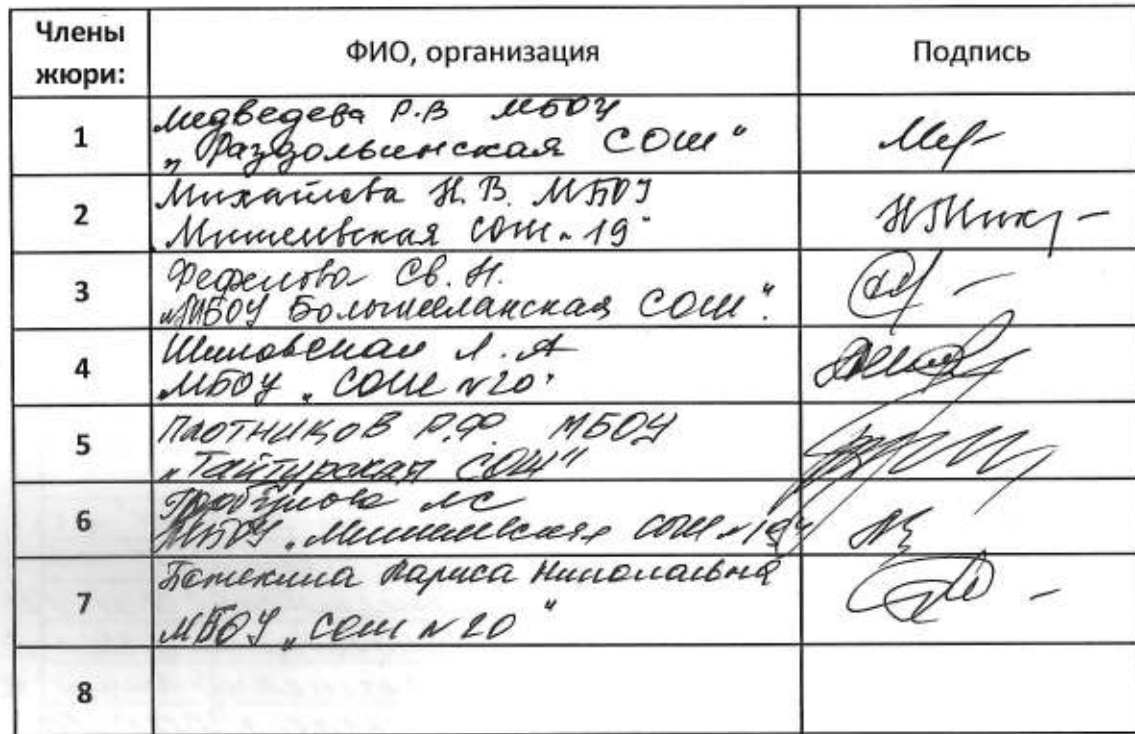 Члены жюри: ФИО, организация Подпись
1 Медведева Р.В МБОУ
„Раздольинская СОШ"
2 Михайлова Н.В. МБОУ
Мишелевская СОШ № 19"
3 Фефелова Св. Н.
„МБОУ Большееланская СОШ".
4 Шиловская Л.А
МБОУ „СОШ №20"
5 Плотников Р.Ф. МБОУ
„Тайтурская СОШ"
6 ЛС
МБОУ „Мишелевская СОШ №19"
7 Лариса Николаевна
МБОУ „СОШ №20"
8